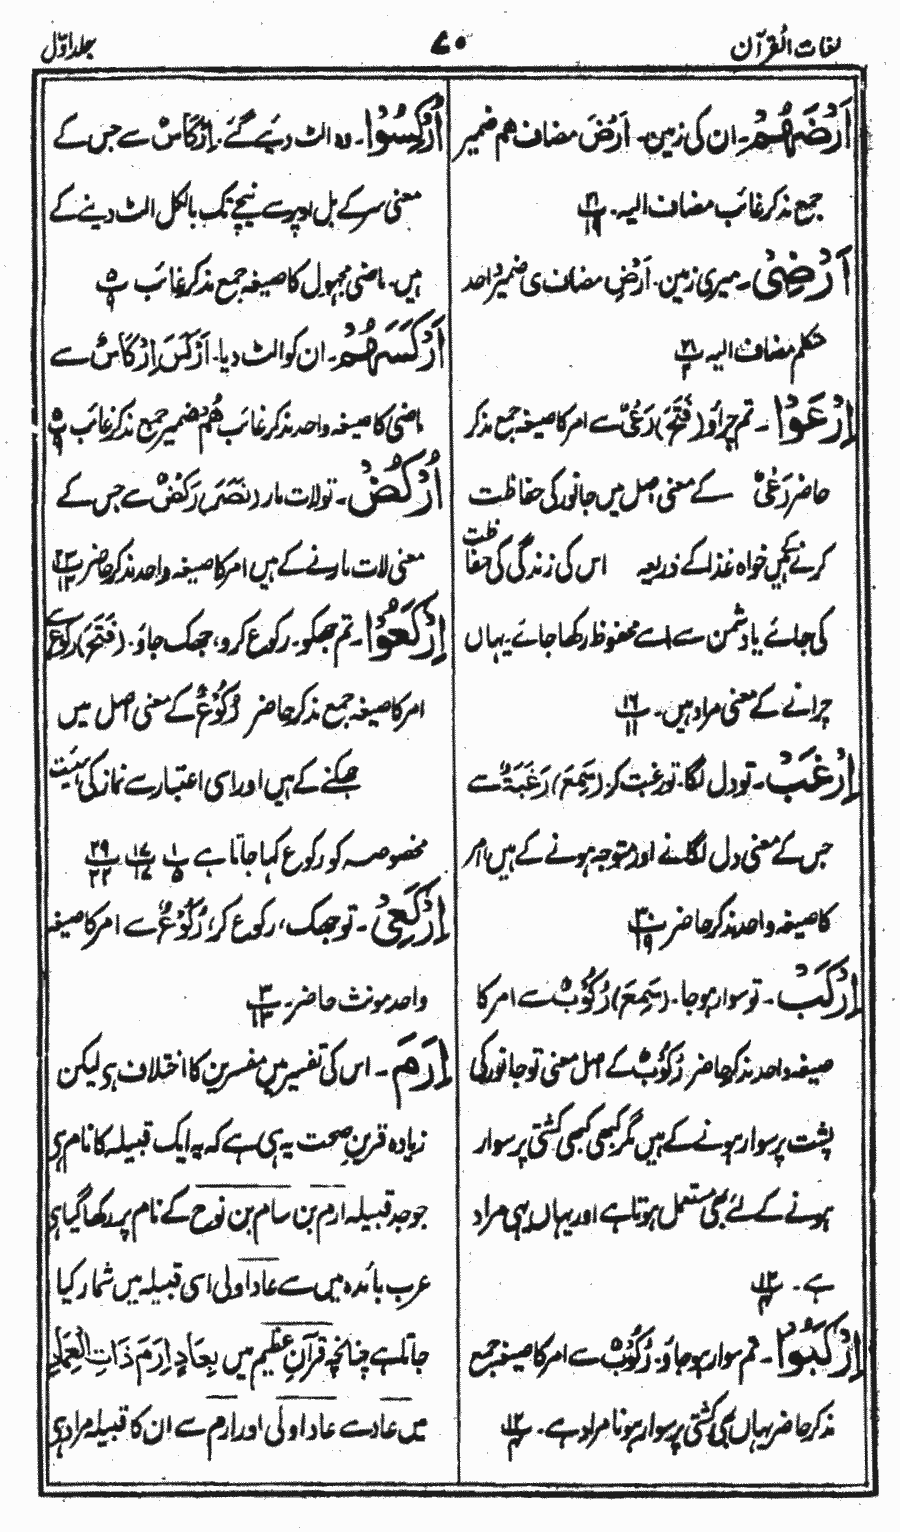 لغات القرآن
۷۰
جلد اوّل
اَرْضَهُمْ۔ ان کی زمین۔ اَرْضَ مضاف ھم ضمیر
جمع مذکر غائب مضاف الیہ۔ ۲۱/۱۹
اَرْضِیْ۔ میری زمین۔ اَرْضِ مضاف ی ضمیر واحد
متکلم مضاف الیہ ۲۱/۲
اِرْعَوْا۔ تم چراؤ (فَتَحَ) رَعْیٌ سے امر کا صیغہ جمع مذکر
حاضر رَعْیٌ کے معنی اصل میں جانور کی حفاظت
کرنے کے ہیں خواہ غذا کے ذریعہ اس کی زندگی کی حفاظت
کی جائے یا دشمن سے اسے محفوظ رکھا جائے۔ یہاں
چرانے کے معنی مراد ہیں۔ ۱۶/۱۱
اِرْغَبْ۔ تو دل لگا۔ تو رغبت کر۔ (سَمِعَ) رَغْبَةٌ سے
جس کے معنی دل لگانے اور متوجہ ہونے کے ہیں، امر
کا صیغہ واحد مذکر حاضر ۳۰/۱۹
اِرْکَبْ۔ تو سوار ہو جا۔ (سَمِعَ) رُکُوْبٌ سے امر کا
صیغہ واحد مذکر حاضر رُکُوْبٌ کے اصل معنی تو جانور کی
پشت پر سوار ہونے کے ہیں مگر کبھی کبھی کشتی پر سوار
ہونے کے لئے بھی مستعمل ہوتا ہے اور یہاں یہی مراد
ہے۔ ۱۲/۴
اِرْکَبُوْا۔ تم سوار ہو جاؤ۔ رُکُوْبٌ سے امر کا صیغہ جمع
مذکر حاضر یہاں بھی کشتی پر سوار ہونا مراد ہے۔ ۱۲/۴
اُرْکِسُوْا۔ وہ الٹ دیئے گئے۔ اِرْکَاسٌ سے جس کے
معنی سر کے بل اوپر سے نیچے تک بالکل الٹ دینے کے
ہیں۔ ماضی مجہول کا صیغہ جمع مذکر غائب ۵/۹
اَرْکَسَهُمْ۔ ان کو الٹ دیا۔ اَرْکَسَ اِرْکَاسٌ سے
ماضی کا صیغہ واحد مذکر غائب ھُمْ ضمیر جمع مذکر غائب ۵/۹
اُرْکُضْ۔ تو لات مار (نَصَرَ) رَکْضٌ سے جس کے
معنی لات مارنے کے ہیں امر کا صیغہ واحد مذکر حاضر ۲۳/۱۳
اِرْکَعُوْا۔ تم جھکو۔ رکوع کرو، جھک جاؤ۔ (فَتَحَ) رکوع سے
امر کا صیغہ جمع مذکر حاضر رُکُوْعٌ کے معنی اصل میں
جھکنے کے ہیں اور اسی اعتبار سے نماز کی ہیئت
مخصوصہ کو رکوع کہا جاتا ہے ۱/۵ ۱۷/۱۷ ۲۹/۲۲
اِرْکَعِیْ۔ تو جھک، رکوع کر، رُکُوْعٌ سے امر کا صیغہ
واحد مونث حاضر۔ ۳/۱۳
اِرَمَ۔ اس کی تفسیر میں مفسرین کا اختلاف ہی لیکن
زیادہ قرین صحت یہ ہی ہے کہ یہ ایک قبیلہ کا نام ہی
جو جد قبیلہ ارم بن سام بن نوح کے نام پر رکھا گیا ہی
عرب بائدہ میں سے عاد اولی اسی قبیلہ میں شمار کیا
جاتا ہے چنانچہ قرآن عظیم میں بِعَادٍ اِرَمَ ذَاتِ الْعِمَادِ
میں عاد سے عاد اولی اور ارم سے ان کا قبیلہ مراد ہی